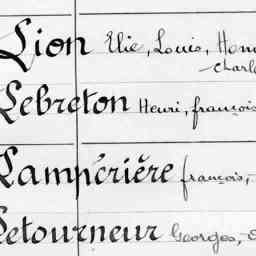 Lion Elie, Louis,
Charl
Lebreton Henri, françois
Lamperière françois,
Letourneur Georges,